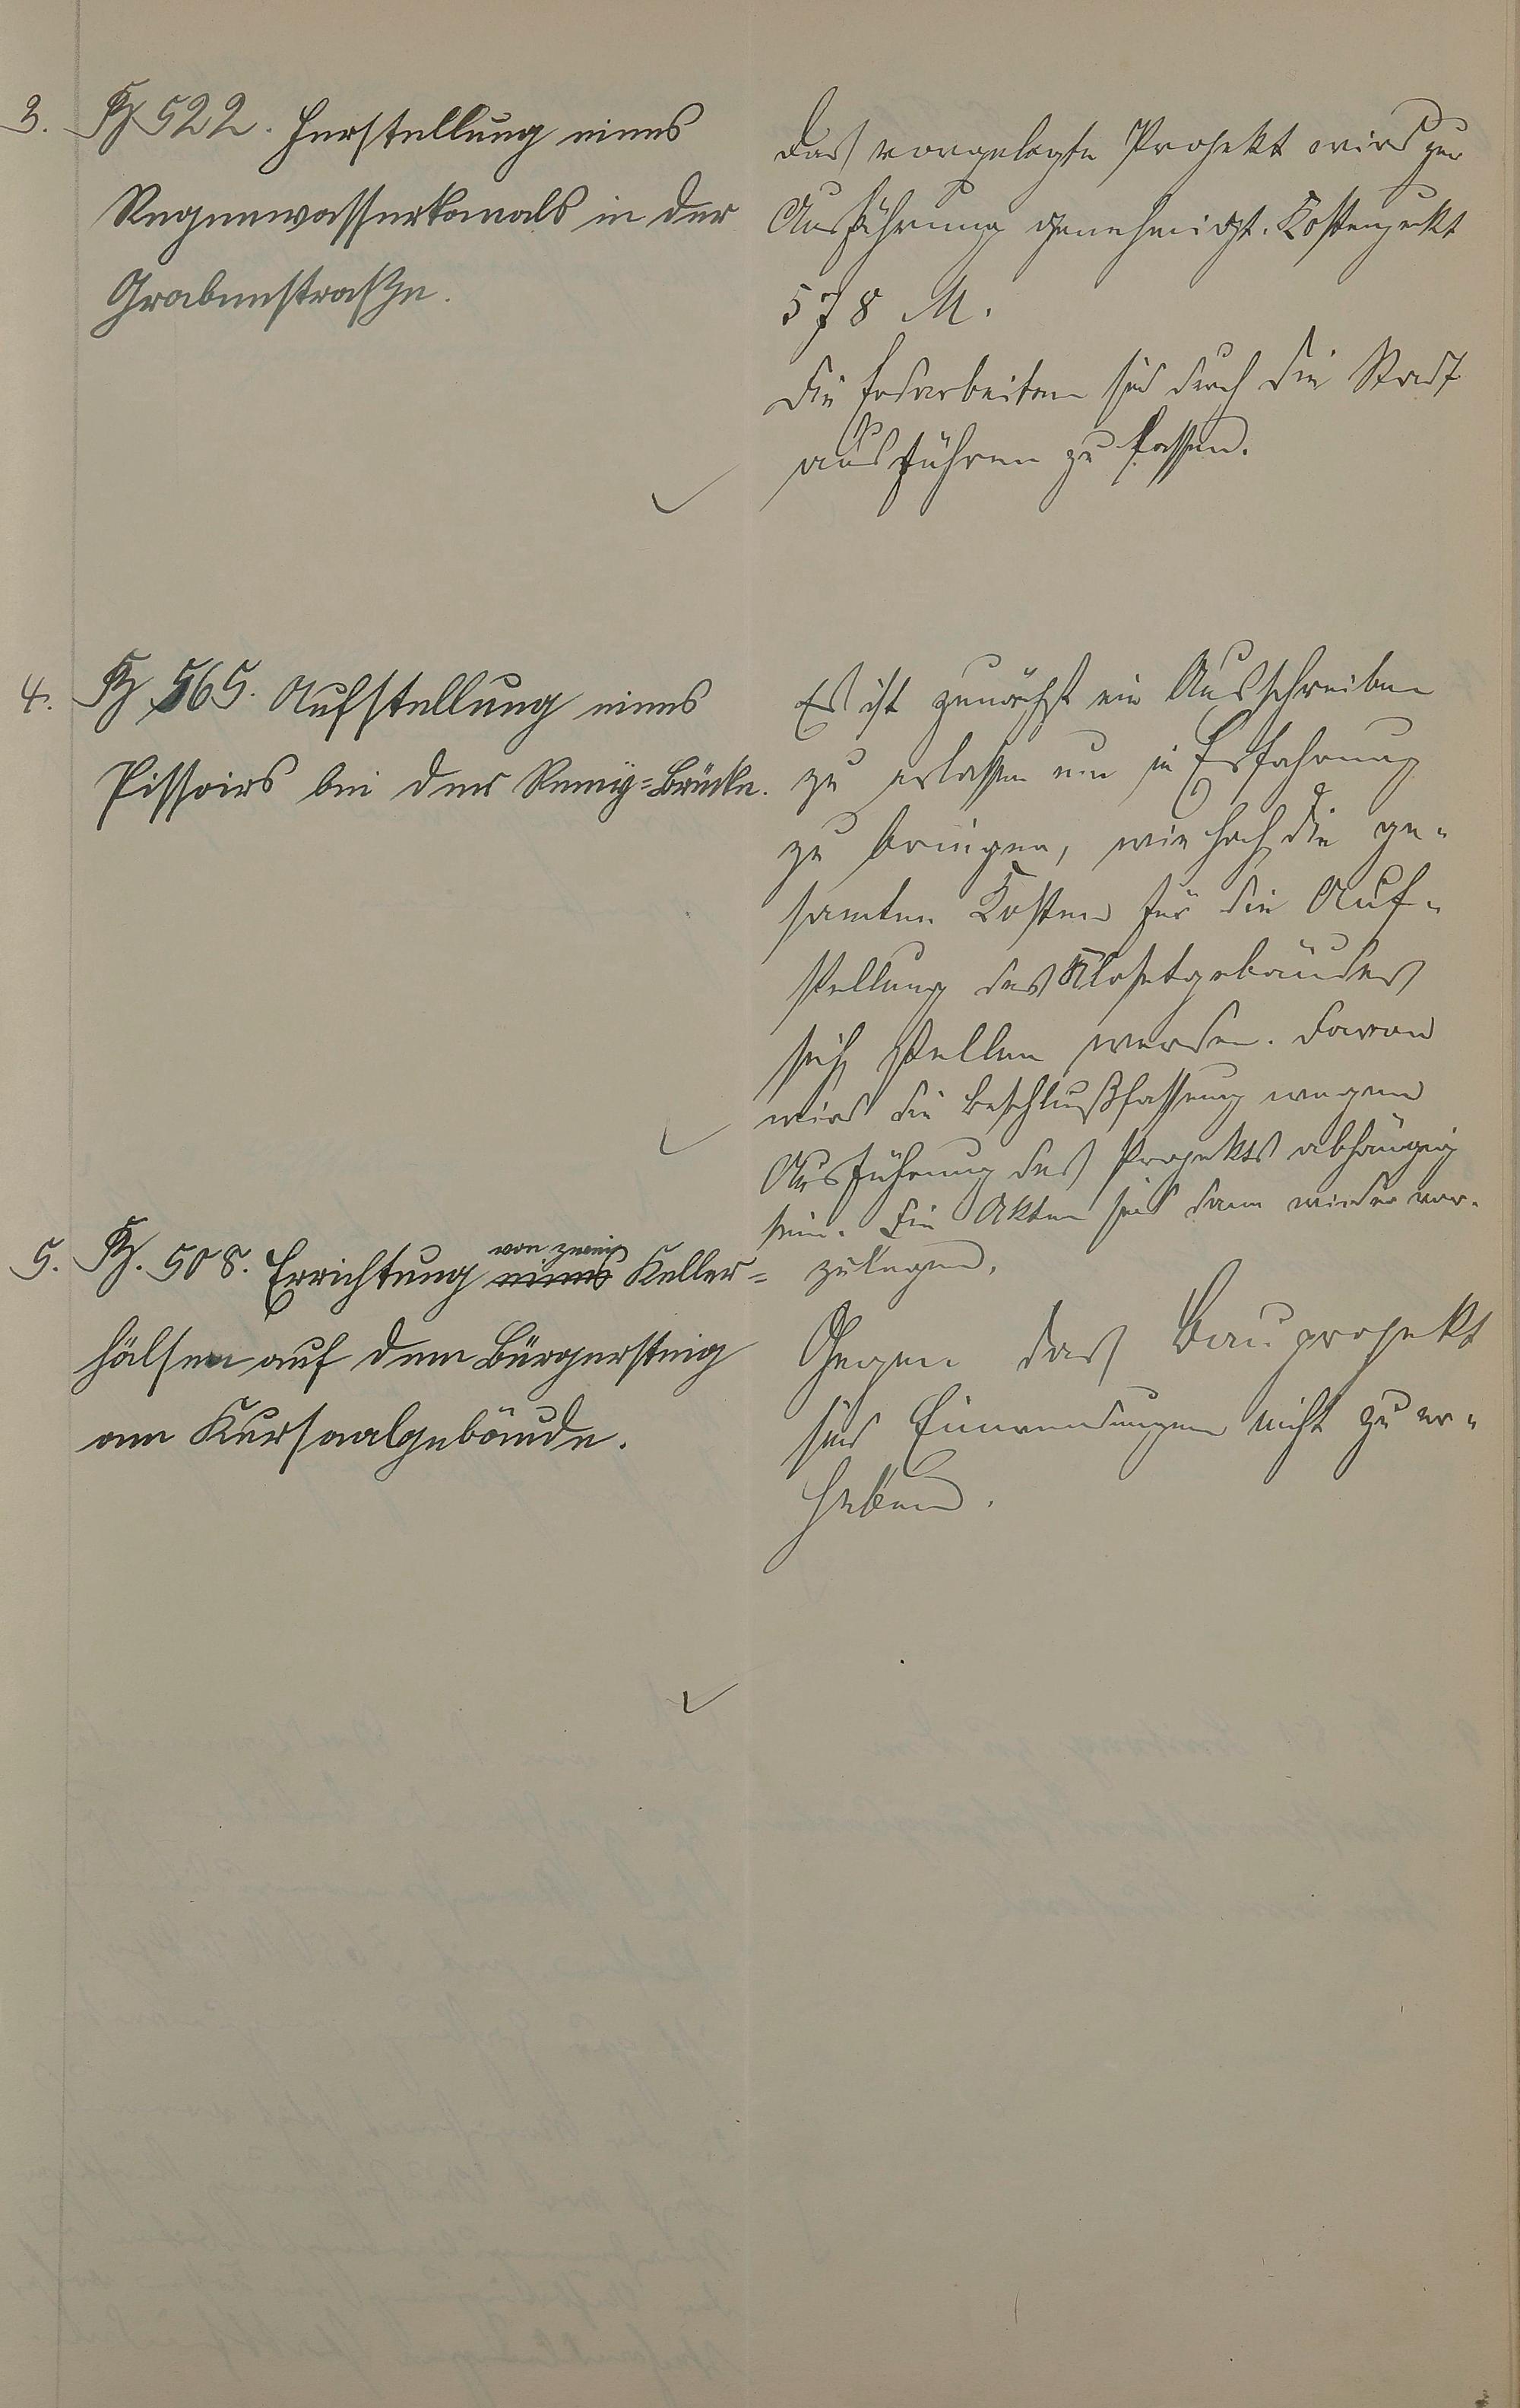 3. Tz 522. Herstellung eines
Regenwasserkanals in der
Grabenstraße.
Das vorgelegte Projekt wird zur
Ausführung genehmigt. Kostenpunkt
578 M.
Die Erdarbeiten sind durch die Stadt
ausführen zu lassen.
4. Tz 565. Aufstellung eines
Pissoirs bei der Remy-Brücke.
Es ist zunächst ein Ausschreiben
zu erlassen um in Erfahrung
zu bringen, wie hoch die ge-
samten Kosten für die Auf-
stellung des Klosetgebäudes
sich stellen werden. Davon
wird die Beschlußfassung wegen
Ausführung des Projekts abhängig
sein. Die Akten sind dann wieder vor-
zulegen.
5. Tz. 508. Errichtung eines von zwei Keller=
hälsen auf dem Bürgersteig
am Kursaalgebäude.
Gegen das Bauprojekt
sind Einwendungen nicht zu er-
heben.